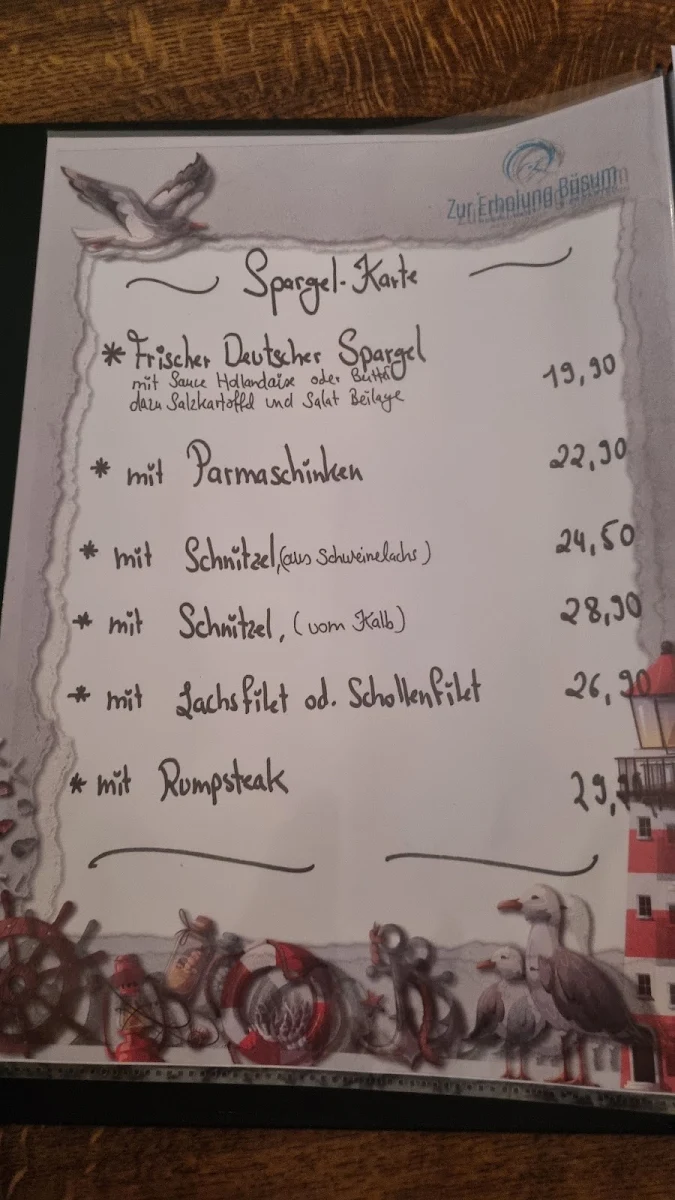 Zur Erholung Büsum
Spargel-Karte
* Frischer Deutscher Spargel
mit Sauce Hollandaise oder Butter
19,90
dazu Salzkartoffel und Salat Beilage
* mit Parmaschinken 22,90
* mit Schnitzel, (aus Schweinelachs) 24,50
* mit Schnitzel, (vom Kalb) 28,90
* mit Lachsfilet od. Schollenfilet 26,90
* mit Rumpsteak 29,